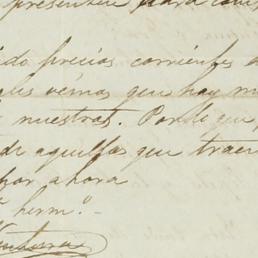 presenten para con
ido precios corrientes d
que vemos que hay m
nuestras. Por lo que
de aquellas que traer
por ahora
herm.º